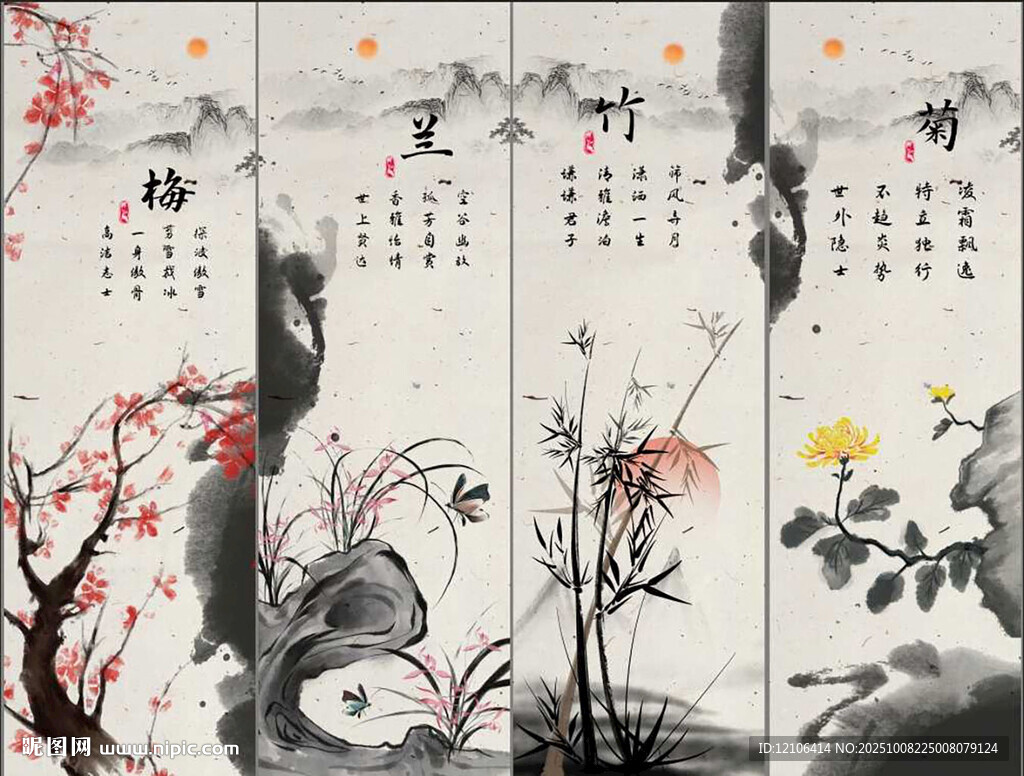 梅
探波傲雪
剪雪裁冰
一身傲骨
高洁志士
兰
空谷幽放
孤芳自赏
香雅怡情
世上贤达
竹
筛风弄月
潇洒一生
清雅澹泊
谦谦君子
菊
凌霜飘逸
特立独行
不趋炎势
世外隐士
昵图网 www.nipic.com
ID:12106414 NO:20251008225008079124